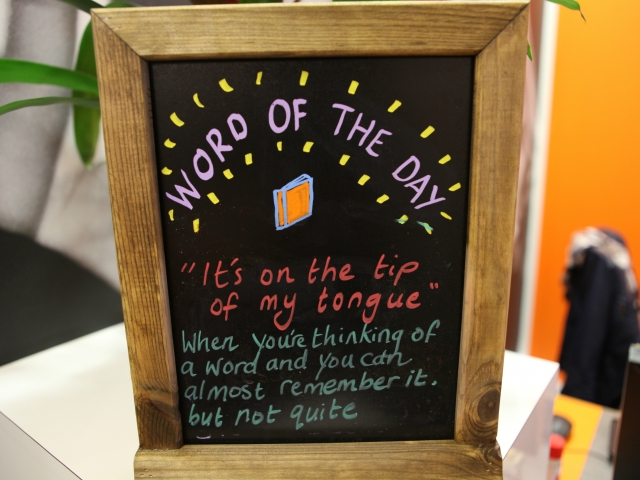 WORD OF THE DAY
"It's on the tip
of my tongue"
When you're thinking of
a word and you can
almost remember it.
but not quite